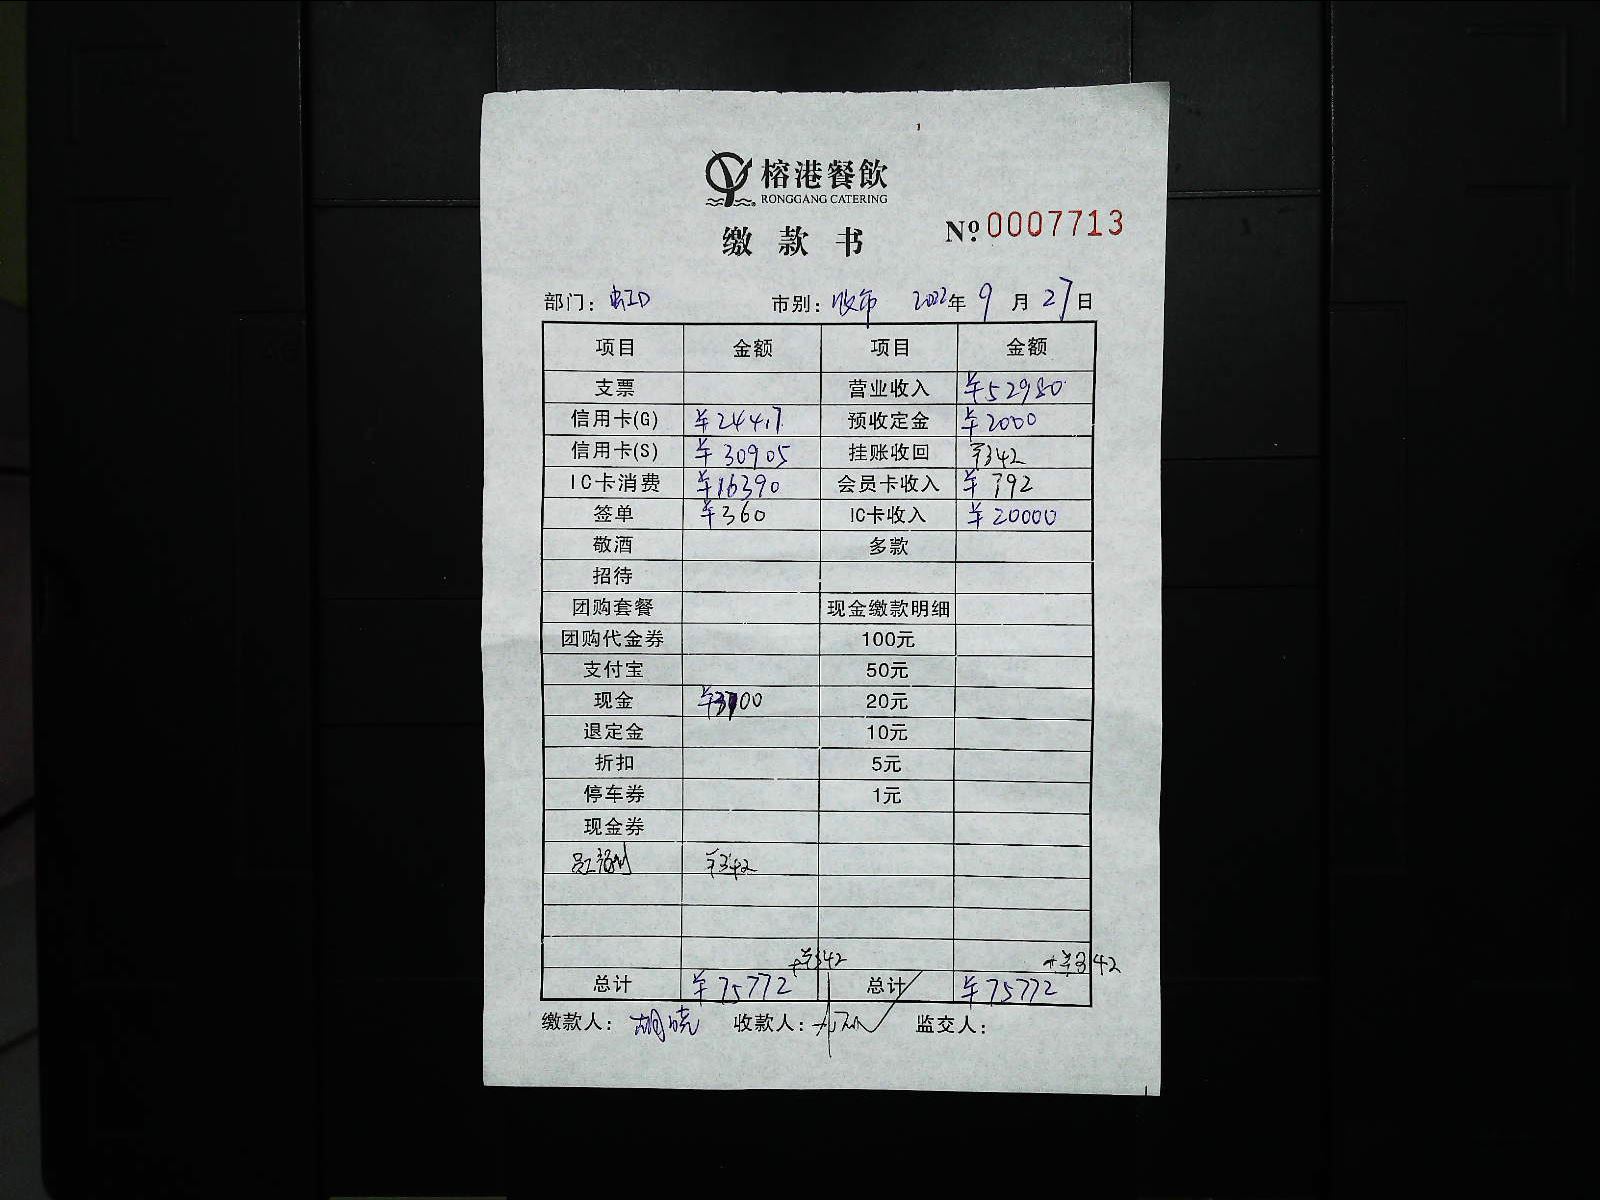 榕港餐飲
RONGGANG CATERING
缴款书
Nº 0007713
部门：虹口 市别：收市 2022年9月27日
项目 金额 项目 金额
支票 营业收入 ¥52980
信用卡(G) ¥24417 预收定金 ¥2000
信用卡(S) ¥30905 挂账收回 ¥342
IC卡消费 ¥16390 会员卡收入 ¥792
签单 ¥360 IC卡收入 ¥20000
敬酒 多款
招待
团购套餐 现金缴款明细
团购代金券 100元
支付宝 50元
现金 ¥3700 20元
退定金 10元
折扣 5元
停车券 1元
现金券
员工福利 ¥342
+¥342 +¥342
总计 ¥75772 总计 ¥75772
缴款人：胡晓 收款人： 监交人：